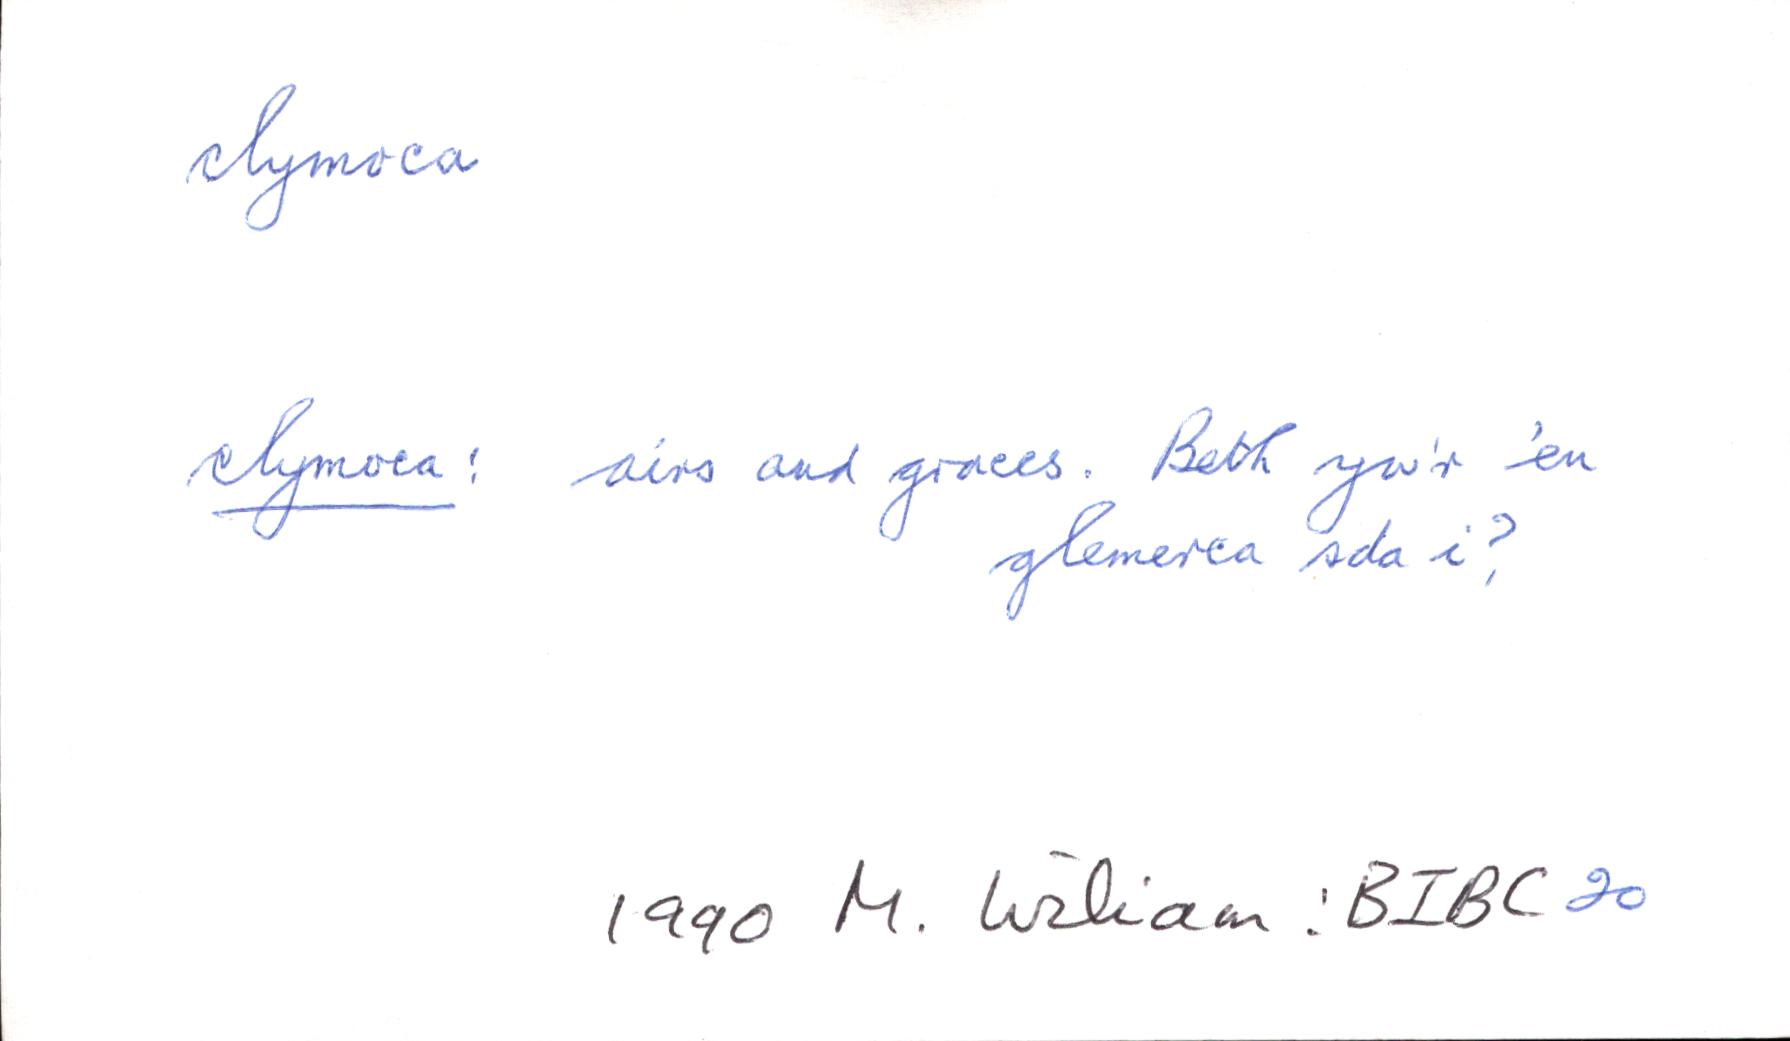 clymoca
clymoca: airs and graces. Beth yw'r 'en
glemerca sda i?
1990 M. Wiliam: BIBC 20